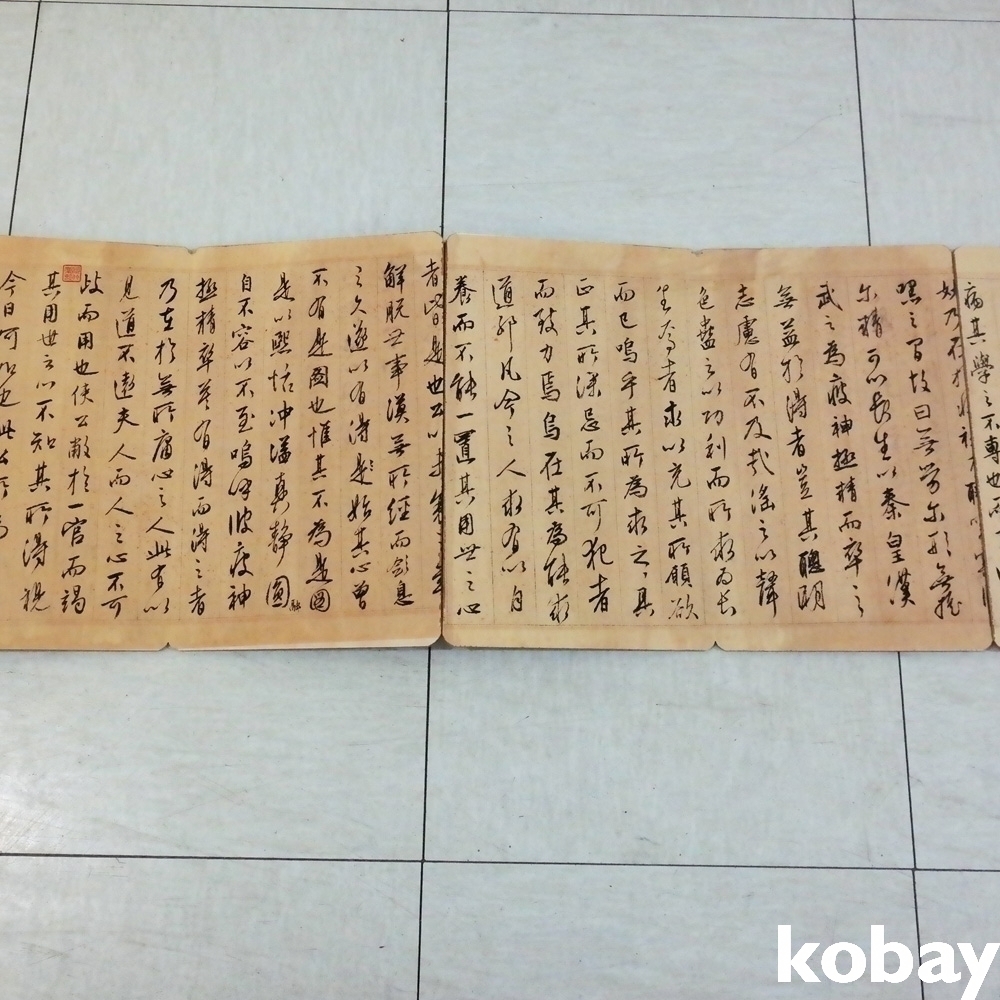 病其學之不專也而
妙乃在於
嘿之間故曰無勞尔形無摇
尔精可以長生以秦皇漢
武之為疲神極精而卒之
無益於得者豈其聰明
志慮有不及哉滛之以聲
色蠱之以功利而所求而長
生焉者求以充其所願欲
而已嗚乎其所為求之其
正其所深忌而不可犯者
而致力焉烏在其為能求
道邪凡今之人求有以自
養而不能一置其用世之心
者皆是也公以
解脱世事漠無所經而歛息
之久遂以有得是殆其心曾
不有是圖也惟其不為是圖
是以熙恬沖瀜真静圓融
自不容以不至嗚呼彼疲神
極精卒莫有得而得之者
乃在於無所庸心之人此有以
見道不遠夫人而人之心不可
歧而用也使公敝於一官而竭
其用世之心不知其所得視
今日何如也此公所為
kobay